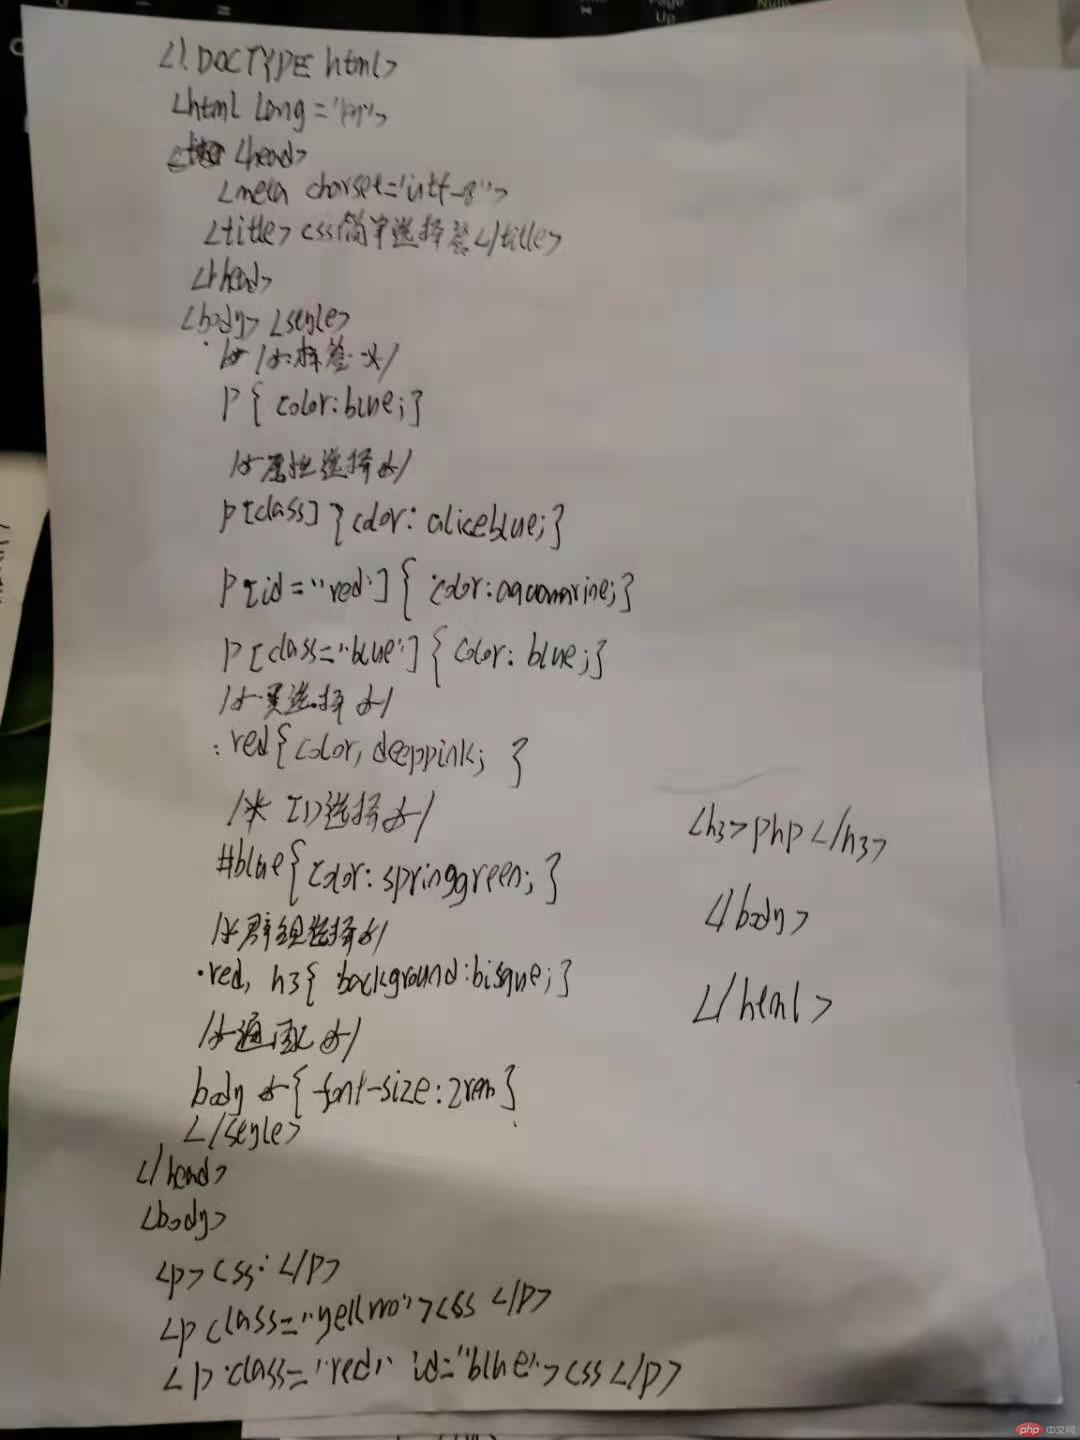 <!DOCTYPE html>
<html lang="">
<head>
<meta charset="utf-8">
<title>css简单选择器</title>
</head>
<body> <style>
/*标签*/
p{ color:blue;}
/*属性选择*/
p[class] }color: aliceblue;}
p[id="red"]{ color:aquamarine;}
p[class="blue"]{ color: blue;}
/*类选择*/
.red{color, deeppink; }
/* ID选择*/
#blue{color: springgreen; }
/*群组选择*/
.red, h3{ background:bisque;}
/*通配*/
body *{ font-size:2rem}
</style>
</head>
<body>
<p> css </p>
<p class="yellow">css </p>
<p class="red" id="blue">css </p>
<h3>php </h3>
</body>
</html>
php 中文网